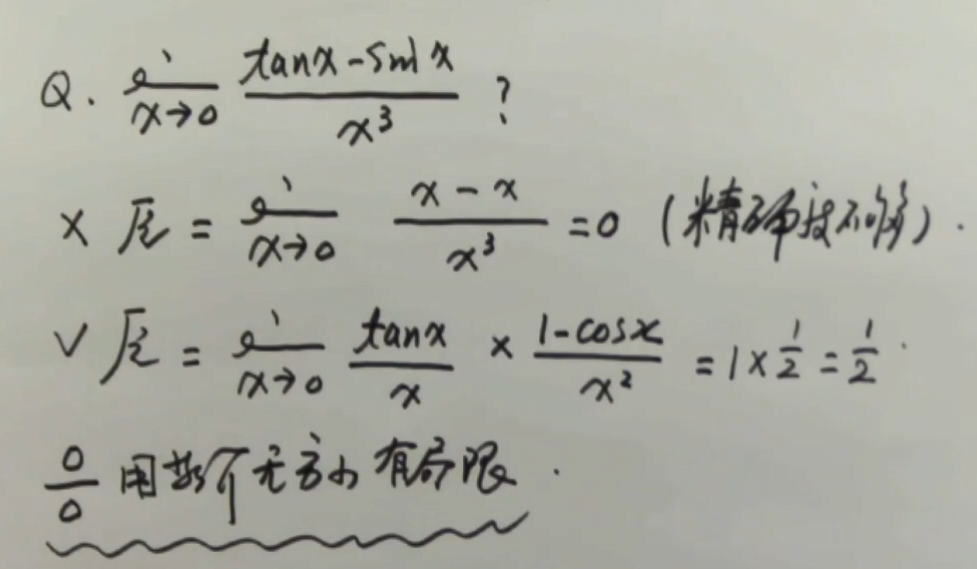 Q. lim x→0 (tanx-sinx)/x³ ?
× 原 = lim x→0 (x-x)/x³ = 0 (精确度不够).
√ 原 = lim x→0 tanx/x × (1-cosx)/x² = 1×1/2 = 1/2.
0/0 用等价无穷小有局限.